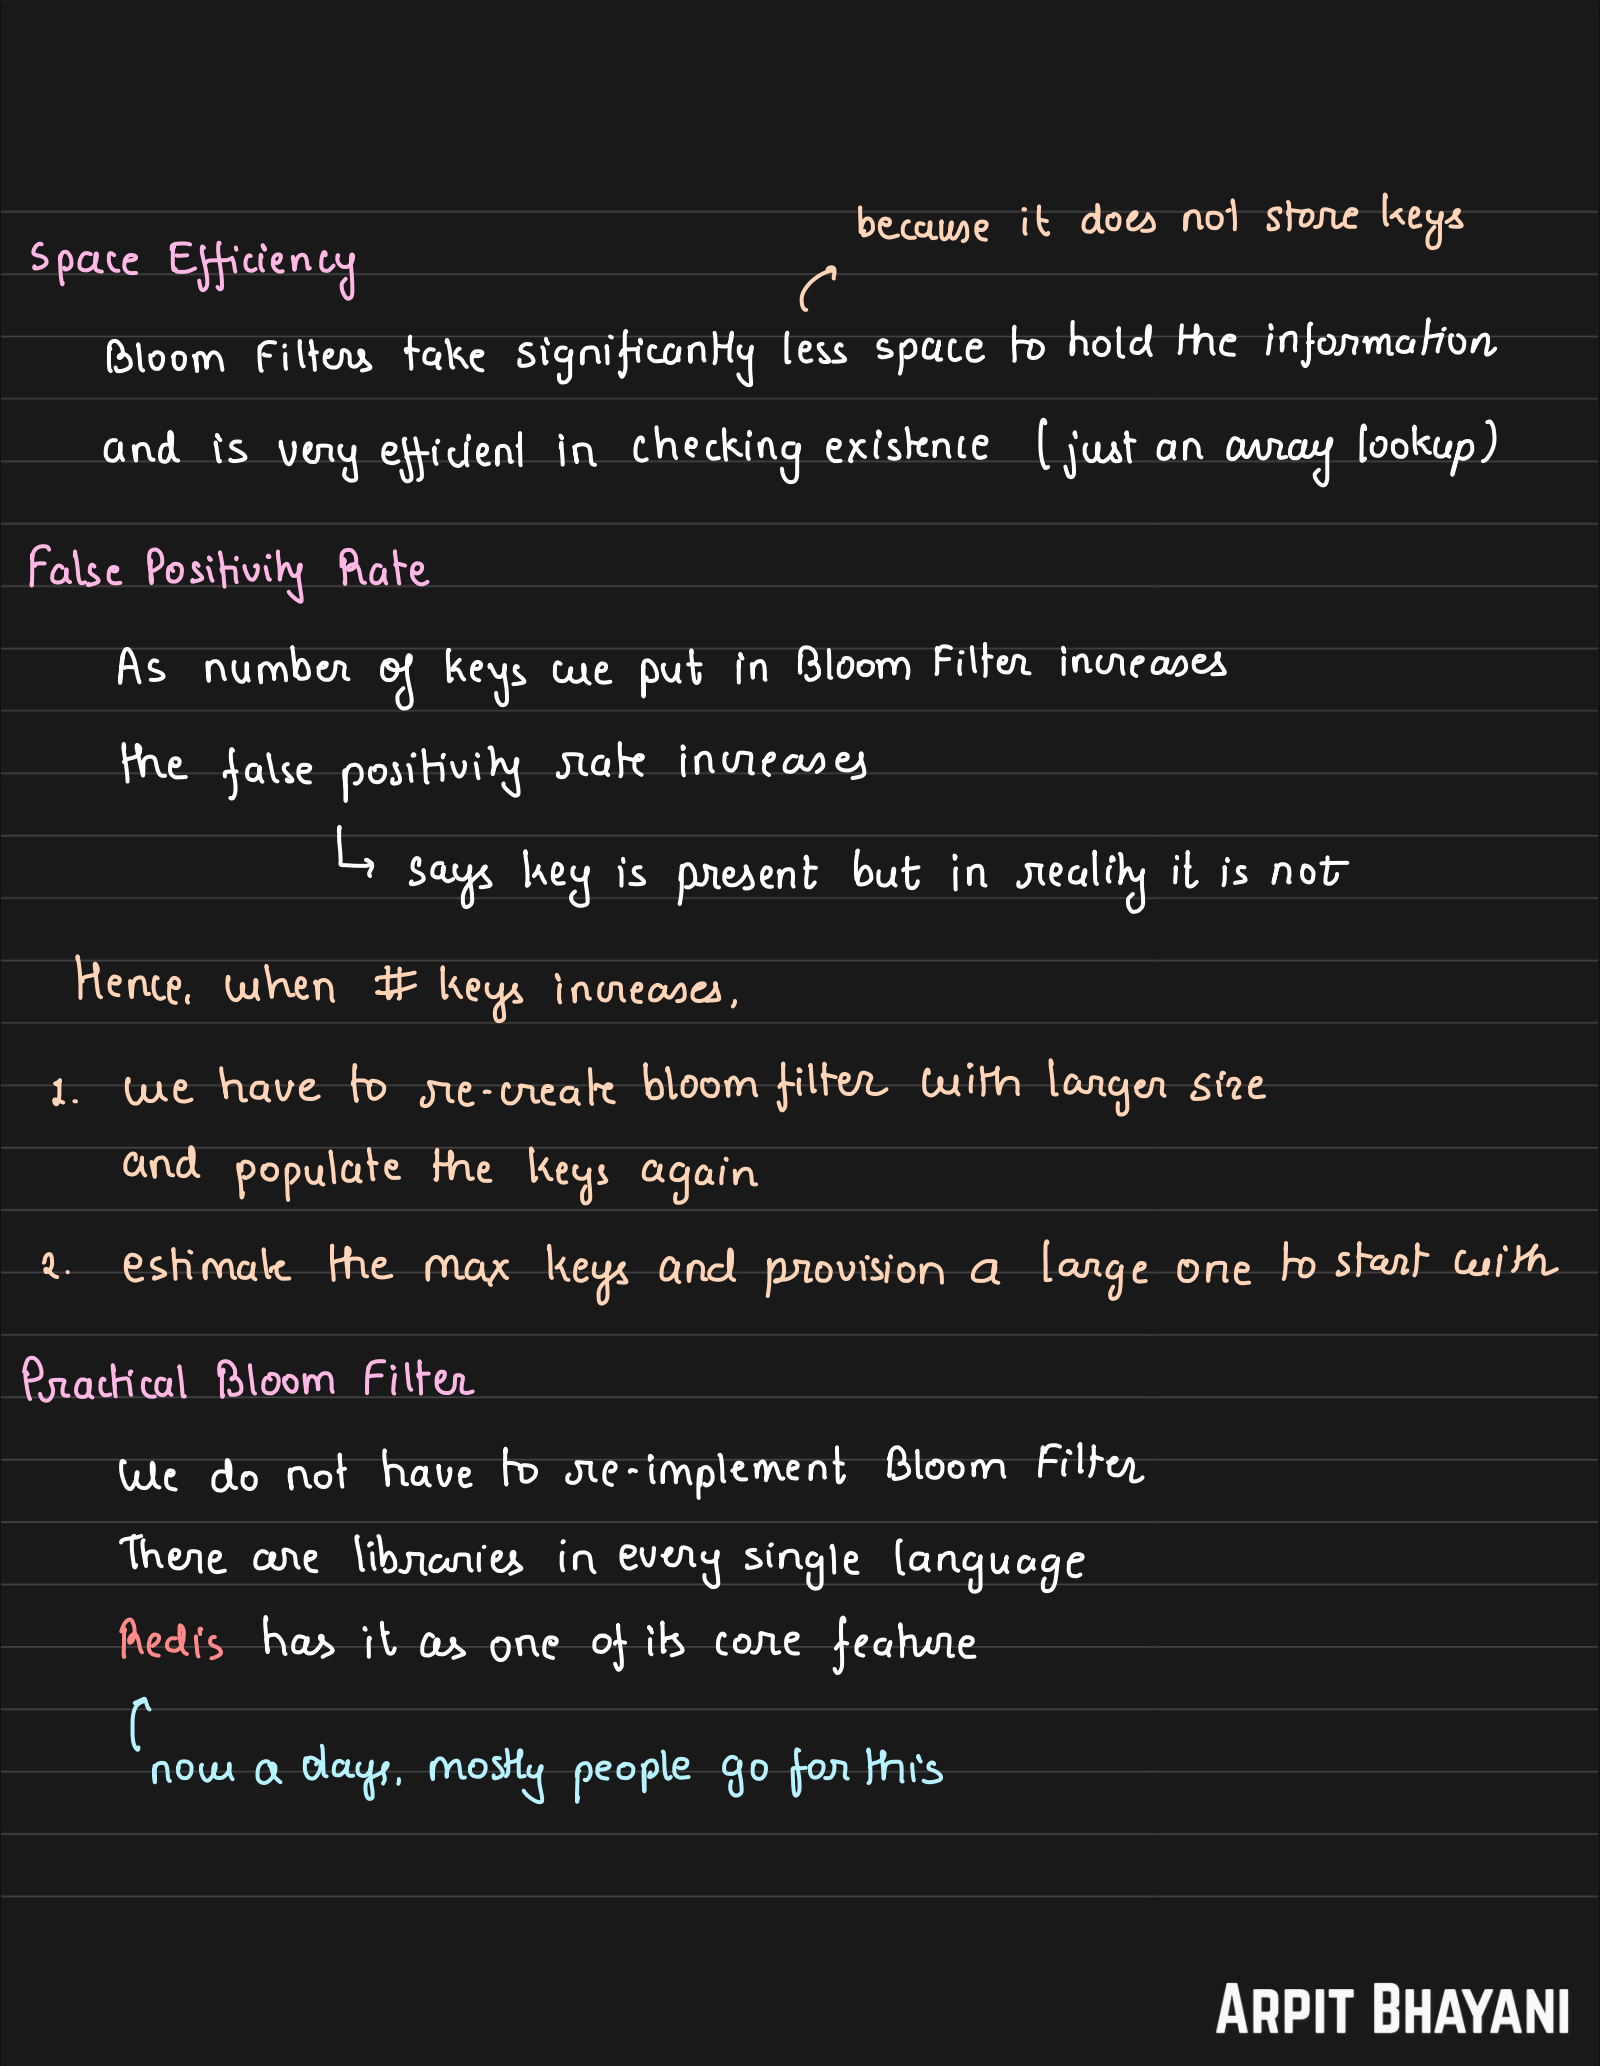 because it does not store keys
Space Efficiency
Bloom Filters take significantly less space to hold the information
and is very efficient in checking existence (just an array lookup)
False Positivity Rate
As number of keys we put in Bloom Filter increases
the false positivity rate increases
↳ says key is present but in reality it is not
Hence, when # keys increases,
1. we have to re-create bloom filter with larger size
and populate the keys again
2. estimate the max keys and provision a large one to start with
Practical Bloom Filter
We do not have to re-implement Bloom Filter
There are libraries in every single language
Redis has it as one of its core feature
now a days, mostly people go for this
ARPIT BHAYANI